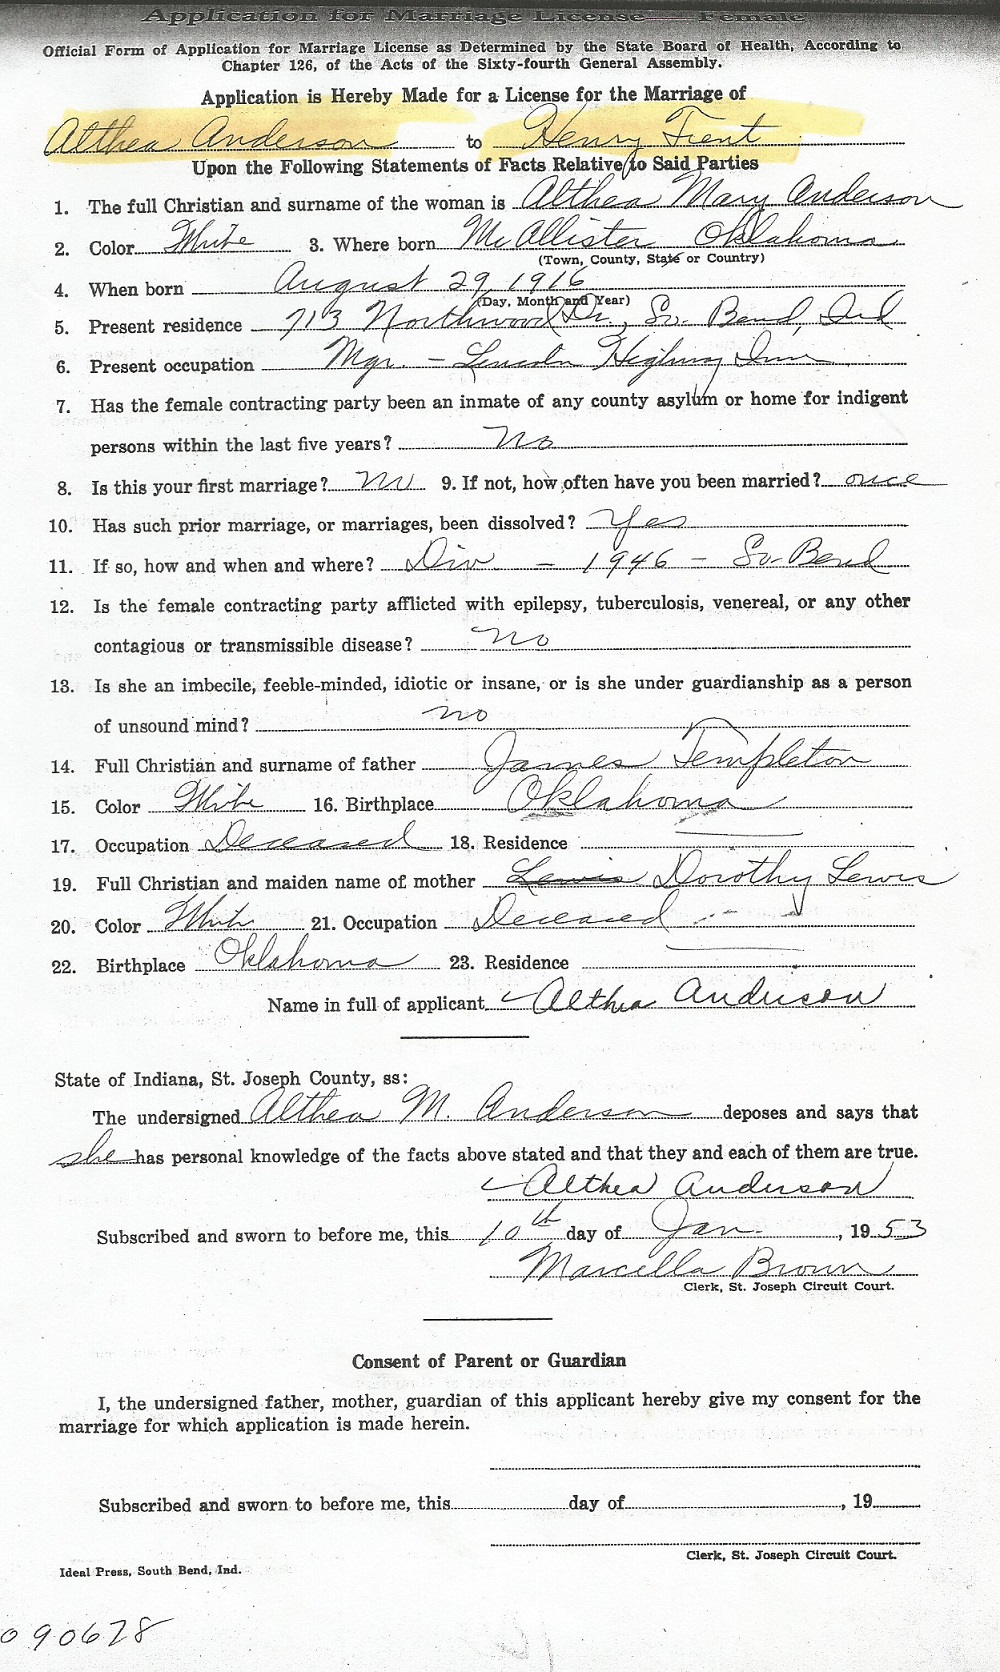 Application for Marriage License — Female
Official Form of Application for Marriage License as Determined by the State Board of Health, According to
Chapter 126, of the Acts of the Sixty-fourth General Assembly.
Application is Hereby Made for a License for the Marriage of
Althea Anderson to Henry Trent
Upon the Following Statements of Facts Relative to Said Parties
1. The full Christian and surname of the woman is Althea Mary Anderson
2. Color White 3. Where born McAllister Oklahoma
(Town, County, State or Country)
4. When born August 29, 1916
(Day, Month and Year)
5. Present residence 713 Northwood Dr., So. Bend, Ind
6. Present occupation Mgr. - Lincoln Highway Inn
7. Has the female contracting party been an inmate of any county asylum or home for indigent
persons within the last five years? no
8. Is this your first marriage? no 9. If not, how often have you been married? once
10. Has such prior marriage, or marriages, been dissolved? Yes
11. If so, how and when and where? Div - 1946 - So. Bend
12. Is the female contracting party afflicted with epilepsy, tuberculosis, venereal, or any other
contagious or transmissible disease? no
13. Is she an imbecile, feeble-minded, idiotic or insane, or is she under guardianship as a person
of unsound mind? no
14. Full Christian and surname of father James Templeton
15. Color White 16. Birthplace Oklahoma
17. Occupation Deceased 18. Residence
19. Full Christian and maiden name of mother Lewis Dorothy Lewis
20. Color White 21. Occupation Deceased
22. Birthplace Oklahoma 23. Residence
Name in full of applicant Althea Anderson
State of Indiana, St. Joseph County, ss:
The undersigned Althea M. Anderson deposes and says that
she has personal knowledge of the facts above stated and that they and each of them are true.
Althea Anderson
Subscribed and sworn to before me, this 10th day of Jan., 1953
Marcella Brown
Clerk, St. Joseph Circuit Court.
Consent of Parent or Guardian
I, the undersigned father, mother, guardian of this applicant hereby give my consent for the
marriage for which application is made herein.
Subscribed and sworn to before me, this day of , 19
Clerk, St. Joseph Circuit Court.
Ideal Press, South Bend, Ind.
090678